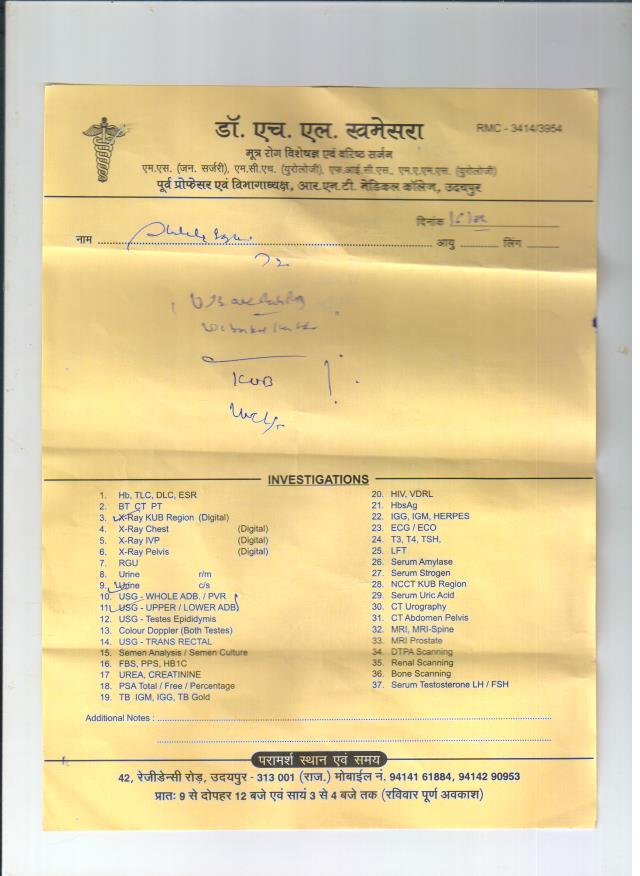 डॉ. एच. एल. खमेसरा
RMC - 3414/3954
मूत्र रोग विशेषज्ञ एवं वरिष्ठ सर्जन
एम.एस. (जन. सर्जरी), एम.सी.एच. (युरोलोजी), एफ.आई.सी.एस., एम.ए.एम.एस. (युरोलोजी)
पूर्व प्रोफेसर एवं विभागाध्यक्ष, आर.एन.टी. मेडिकल कॉलेज, उदयपुर
दिनांक
नाम आयु लिंग
72
KUB
INVESTIGATIONS
1. Hb, TLC, DLC, ESR
2. BT CT PT
3. X-Ray KUB Region (Digital)
4. X-Ray Chest (Digital)
5. X-Ray IVP (Digital)
6. X-Ray Pelvis (Digital)
7. RGU
8. Urine r/m
9. Urine c/s
10. USG - WHOLE ADB. / PVR
11. USG - UPPER / LOWER ADB)
12. USG - Testes Epididymis
13. Colour Doppler (Both Testes)
14. USG - TRANS RECTAL
15. Semen Analysis / Semen Culture
16. FBS, PPS, HB1C
17 UREA, CREATININE
18. PSA Total / Free / Percentage
19. TB IGM, IGG, TB Gold
20. HIV, VDRL
21. HbsAg
22. IGG, IGM, HERPES
23. ECG / ECO
24. T3, T4, TSH,
25. LFT
26. Serum Amylase
27. Serum Strogen
28. NCCT KUB Region
29. Serum Uric Acid
30. CT Urography
31. CT Abdomen Pelvis
32. MRI, MRI-Spine
33. MRI Prostate
34. DTPA Scanning
35. Renal Scanning
36. Bone Scanning
37. Serum Testosterone LH / FSH
Additional Notes :
परामर्श स्थान एवं समय
42, रेजीडेन्सी रोड़, उदयपुर - 313 001 (राज.) मोबाईल नं. 94141 61884, 94142 90953
प्रातः 9 से दोपहर 12 बजे एवं सायं 3 से 4 बजे तक (रविवार पूर्ण अवकाश)